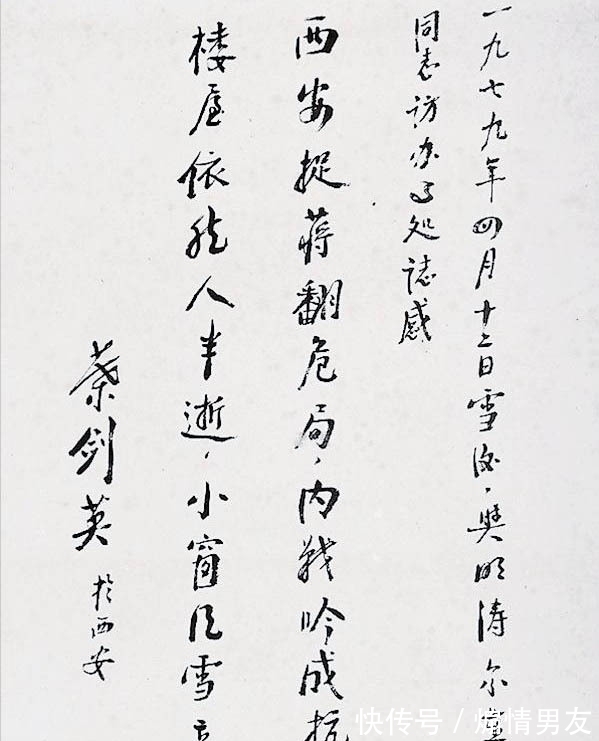 一九七九年四月十二日雪後，與明涛尔
同志访办事处誌感
西安捉蒋翻危局，内战吟成抗
楼屋依然人半逝，小窗风雪
葉剑英 於西安
快传号 / 煽情男友